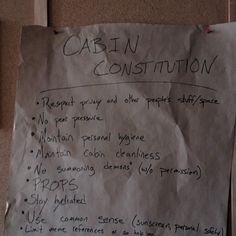 CABIN
CONSTITUTION
• Respect privacy and other people's stuff/space
• No peer pressure
• Maintain personal hygiene
• Maintain cabin cleanliness
• No summoning demons (w/o permission)
• PROPS
• Stay hydrated
• Use common sense (sunscreen, personal safety)
• Limit meme references